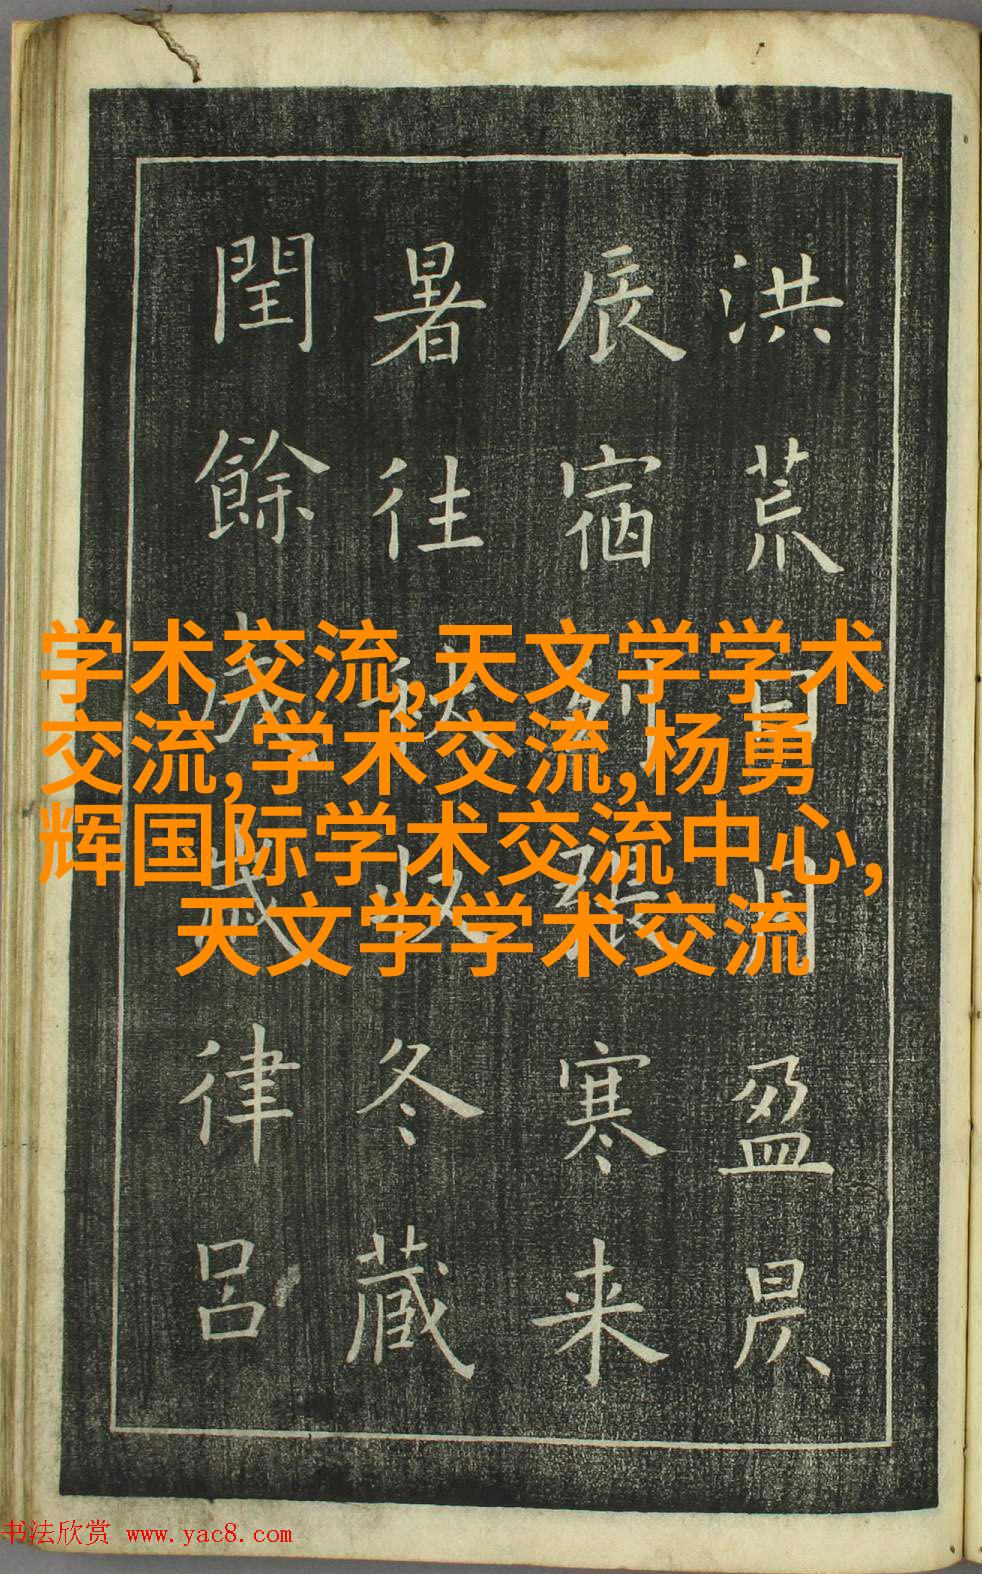 洪荒日月盈昃
辰宿列張寒来
暑往秋收冬藏
閏餘成歲律呂
学术交流,天文学学术
交流,学术交流,杨勇
辉国际学术交流中心,
天文学学术交流
书法欣赏 www.yac8.com